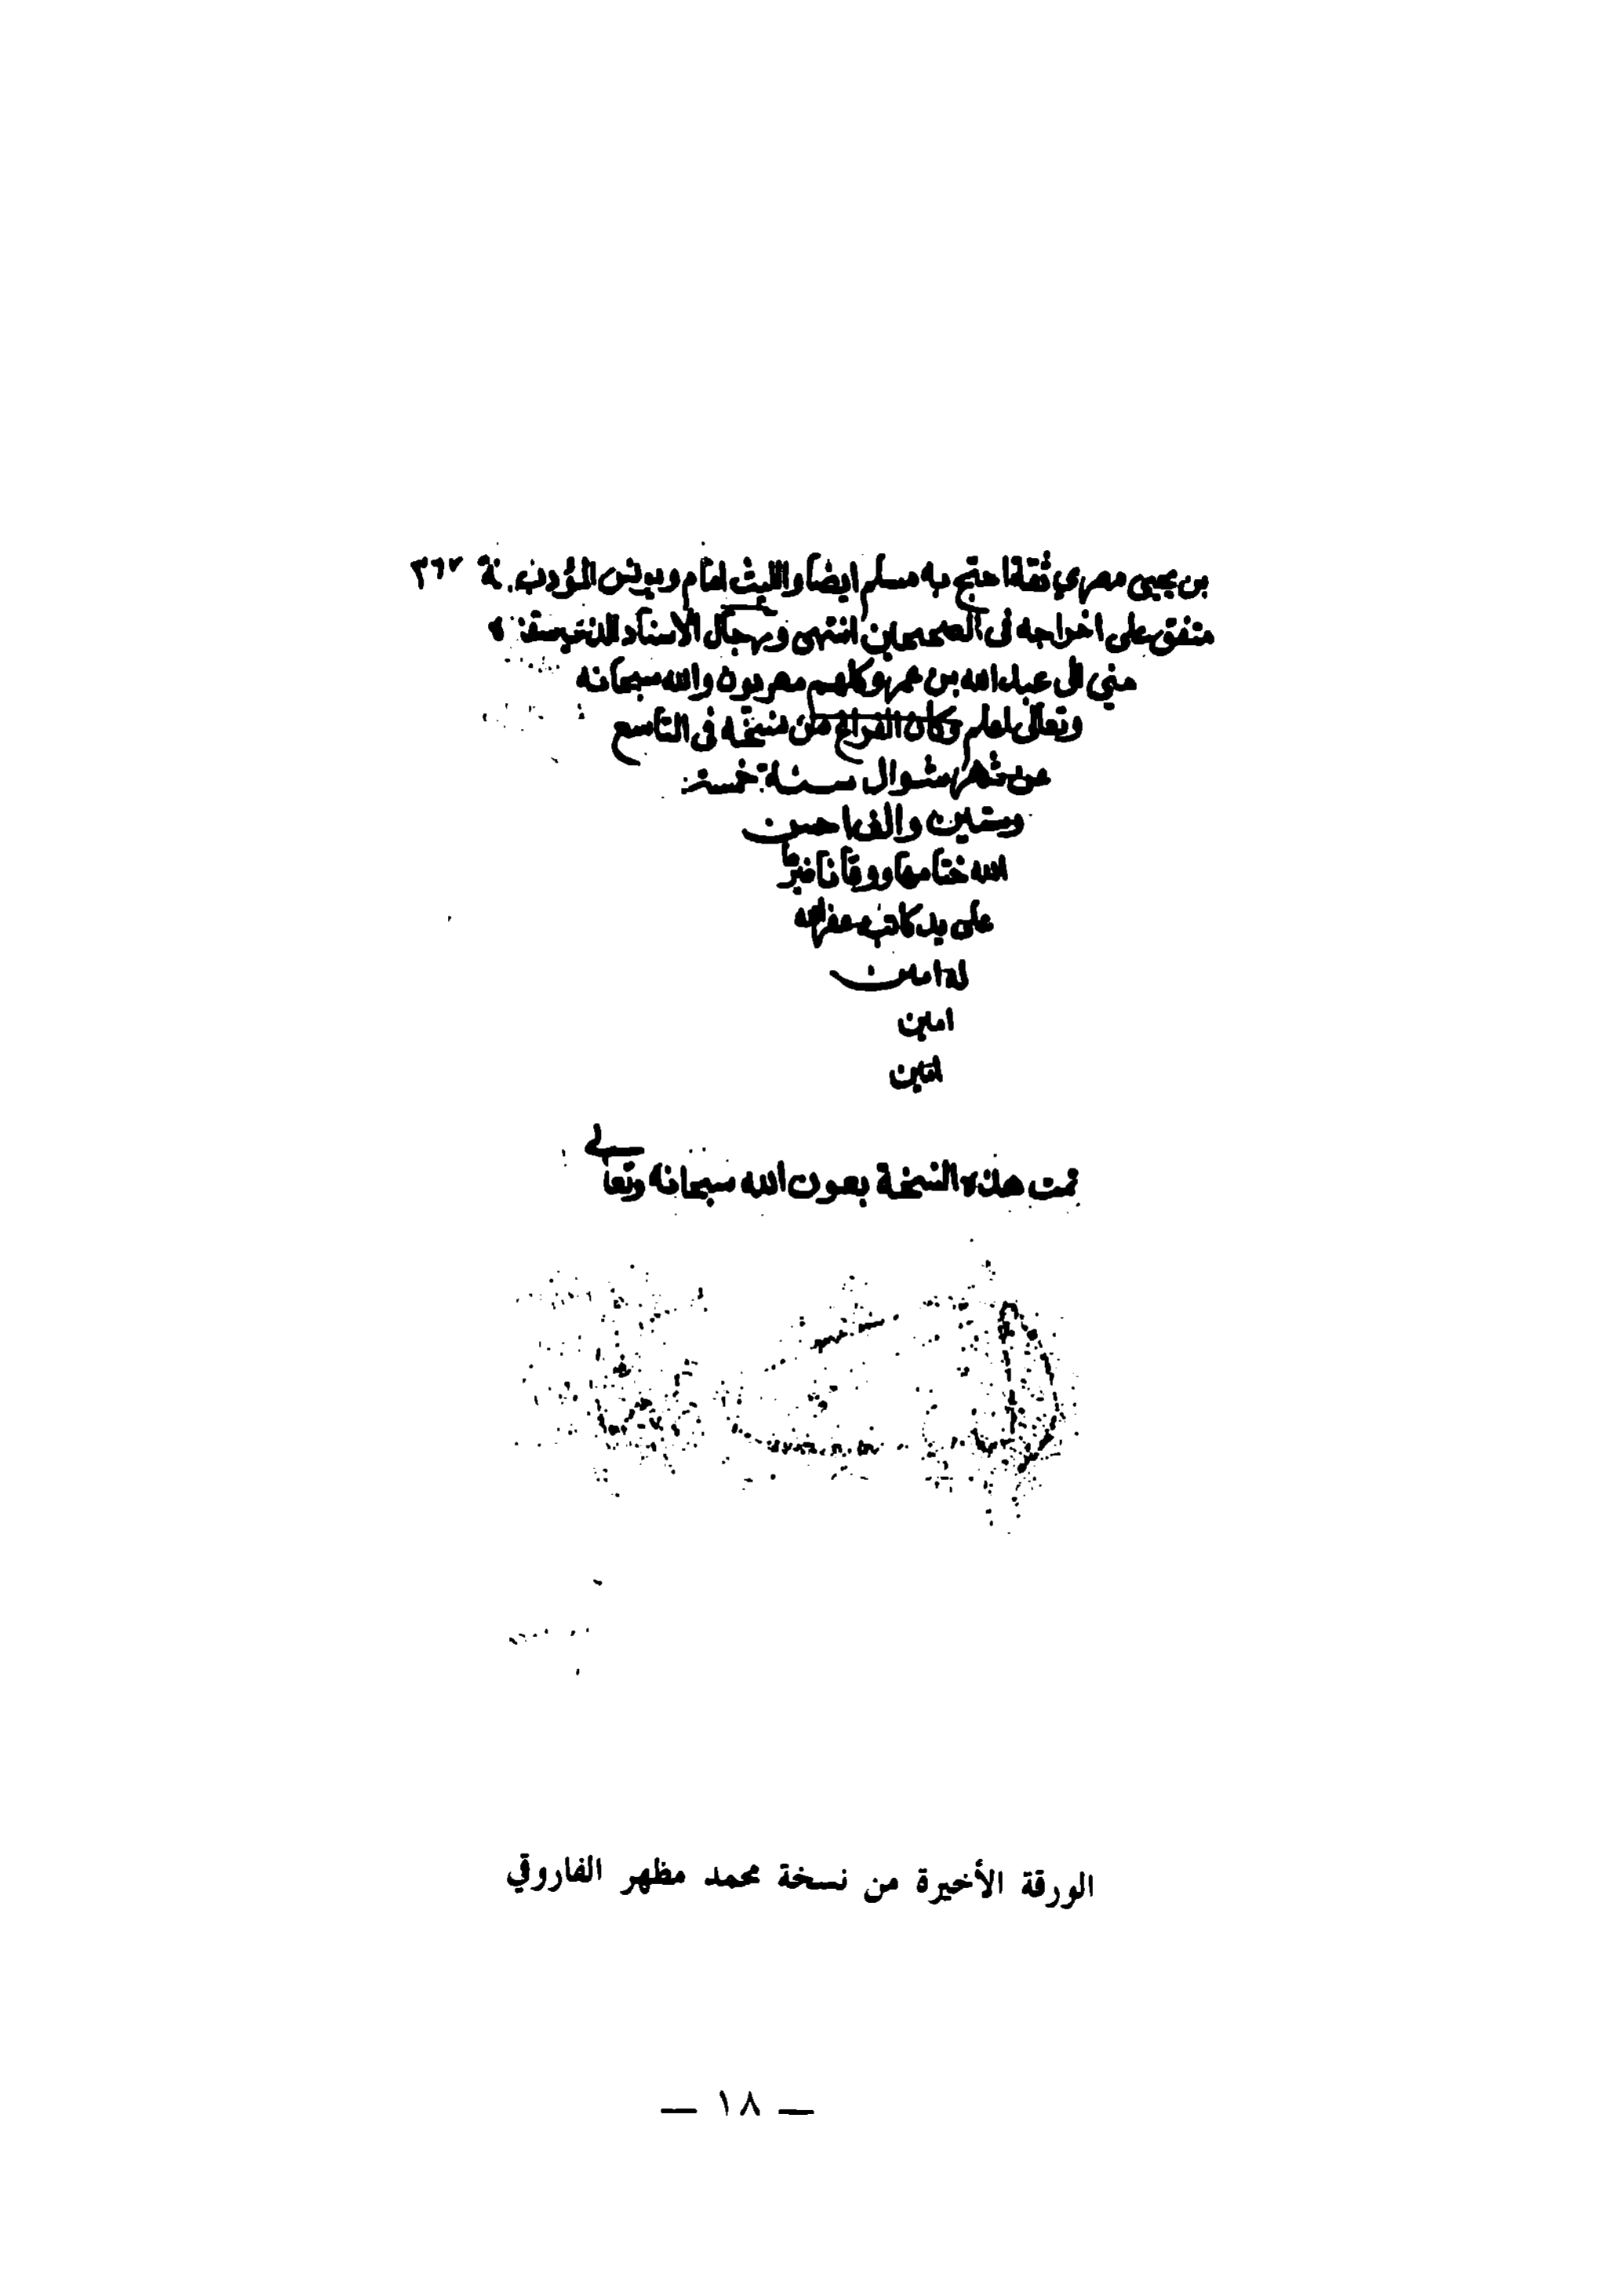 بن يحيى مصري ثقة احتج به مسلم ايضا والليث امام ويونس المؤدب ٣٦٧
متفق على اخراجه فى الصحيحين انتهى ورجال الاسناد الذى
منى الى عبد الله بن عمرو كلهم مصريون والله سبحانه
وتعالى اعلم وكان الفراغ من نسخة فى التاسع
من شهر شوال سنة خمسة
وستين والف احسن
الله ختامها ووقانا
على يد كاتبه غفر الله
له امين
امين
امين
تمت هذه النسخة بعون الله سبحانه وتعالى
الورقة الأخيرة من نسخة محمد مظهر الفاروقي
— ١٨ —